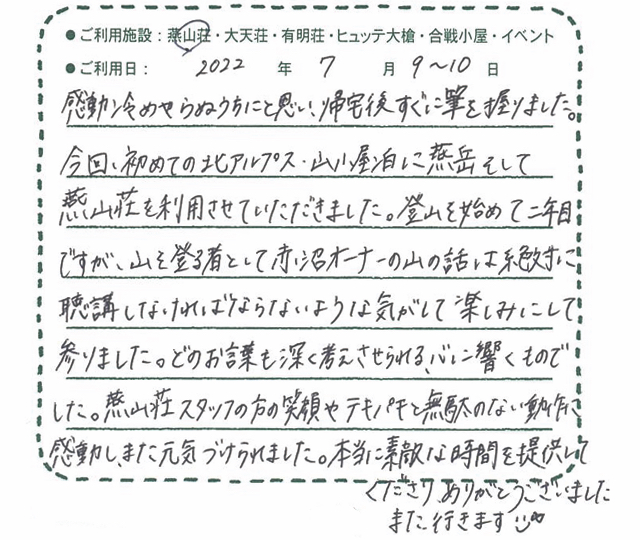 ● ご利用施設：燕山荘・大天荘・有明荘・ヒュッテ大槍・合戦小屋・イベント
● ご利用日： 2022 年 7 月 9〜10 日
感動冷めやらぬうちにと思い、帰宅後すぐに筆を握りました。
今回、初めての北アルプス・山小屋泊に燕岳そして
燕山荘を利用させていただきました。登山を始めて二年目
ですが、山を登る者として赤沼オーナーの山の話は絶対に
聴講しなければならないような気がして楽しみにして
参りました。どのお言葉も深く考えさせられる、心に響くもので
した。燕山荘スタッフの方の笑顔やテキパキと無駄のない動作に
感動し、また元気づけられました。本当に素敵な時間を提供して
くださり、ありがとうございました
また行きます